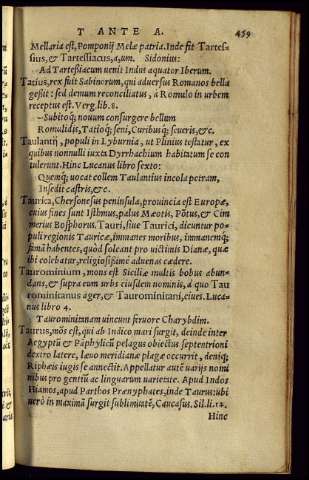 T ANTE A. 459
Mellaria est, Pomponij Melæ patria. Inde fit Tartes-
sius, & Tartessiacus, a,um. Sidonius:
Ad Tartessiacum uenit Indus aquator Iberum.
Tatius, rex fuit Sabinorum, qui aduersus Romanos bella
gessit: sed demum reconciliatus, à Romulo in urbem
receptus est. Verg. lib. 8.
–Subitoq; nouum consurgere bellum
Romulidis, Tatioq; seni, Curibusq; seueris, &c.
Taulantij, populi in Lyburnia, ut Plinius testatur, ex
quibus nonnulli iuxta Dyrrhachium habitatum se con
tulerunt. Hinc Lucanus libro sexto:
Quemq; uocat collem Taulantius incola petram,
Insedit castris, &c.
Taurica, Chersonesus peninsula, prouincia est Europæ,
cuius fines sunt Isthmus, palus Mæotis, Põtus, & Cim
merius Bosphorus. Tauri, siue Taurici, dicuntur po-
puli regionis Tauricæ, immanes moribus, immanemq́;
famã habentes, quòd soleant pro uictimis Dianæ, quæ
ibi colebatur, religiosissimè aduenas cædere.
Taurominium, mons est Siciliæ multis bobus abun-
dans, & supra eum urbs eiusdem nominis, à quo Tau
rominicanus ager, & Taurominicani, ciues. Luca-
nus libro 4.
Taurominitanam uincunt feruore Charybdim.
Taurus, mõs est, qui ab Indico mari surgit, deinde inter
Aegyptũ & Pãphylicũ pelagus obiectus septentrioni
dextro latere, læuo meridianæ plagæ occurrit, deniq;
Riphæis iugis se annectit. Appellatur autẽ uarijs nomi
nibus pro gentiũ ac linguarum uarietate. Apud Indos
Hiamos, apud Parthos Prænyphates, inde Taurus: ubi
uerò in maximã surgit sublimitatẽ, Caucasus. Sil. li. 14.
Hinc